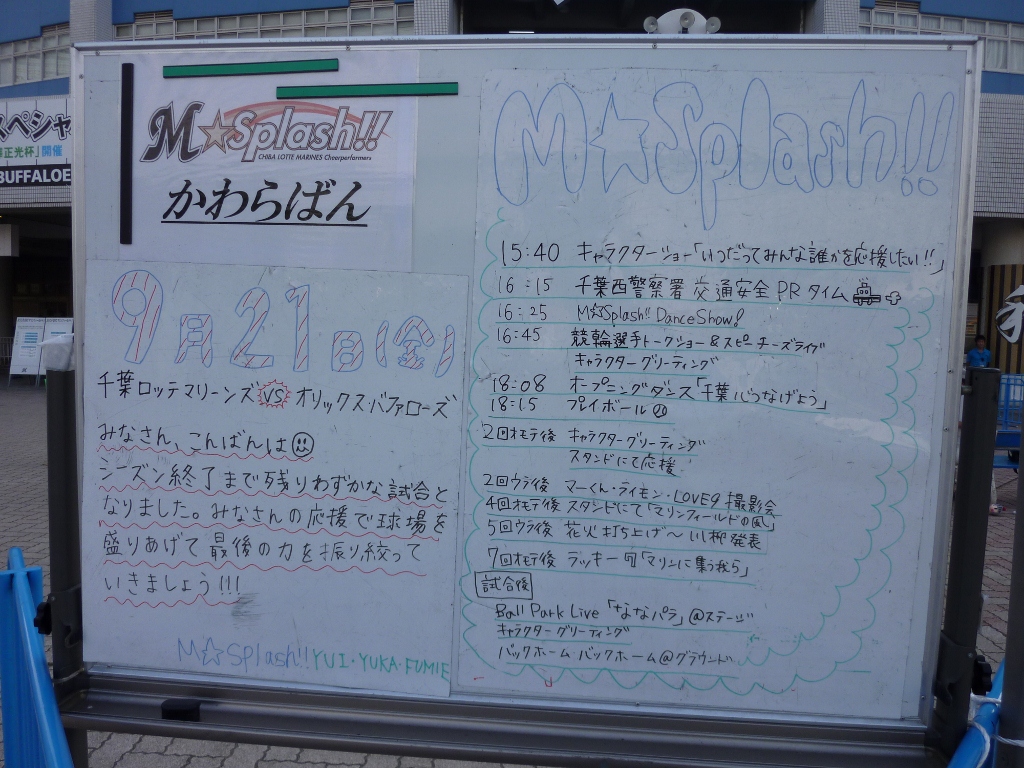 スペシャ
正光杯」開催
BUFFALOE
M☆Splash!!
CHIBA LOTTE MARINES Cheerperformers
かわらばん
9月21日(金)
千葉ロッテマリーンズ VS オリックス・バファローズ
みなさん、こんばんは
シーズン終了まで残りわずかな試合と
なりました。みなさんの応援で球場を
盛りあげて最後の力を振り絞って
いきましょう!!!
M☆Splash!! YUI・YUKA・FUMIE
M☆Splash!!
15:40 キャラクターショー「いつだってみんな誰かを応援したい!!」
16:15 千葉西警察署 交通安全 PRタイム
16:25 M☆Splash!! DanceShow!
16:45 競輪選手トークショー&スピーチーズライヴ
キャラクターグリーティング
18:08 オープニングダンス「千葉 心つなげよう」
18:15 プレイボール
2回オモテ後 キャラクターグリーティング
スタンドにて応援
2回ウラ後 マーくん・ライモン・LOVE9 撮影会
4回オモテ後 スタンドにて「マリンフィールドの風」
5回ウラ後 花火打ち上げ〜川柳発表
7回オモテ後 ラッキー7「マリンに集う我ら」
試合後
Ball Park Live「ななパラ」@ステージ
キャラクターグリーティング
バックホーム・バックホーム@グラウンド